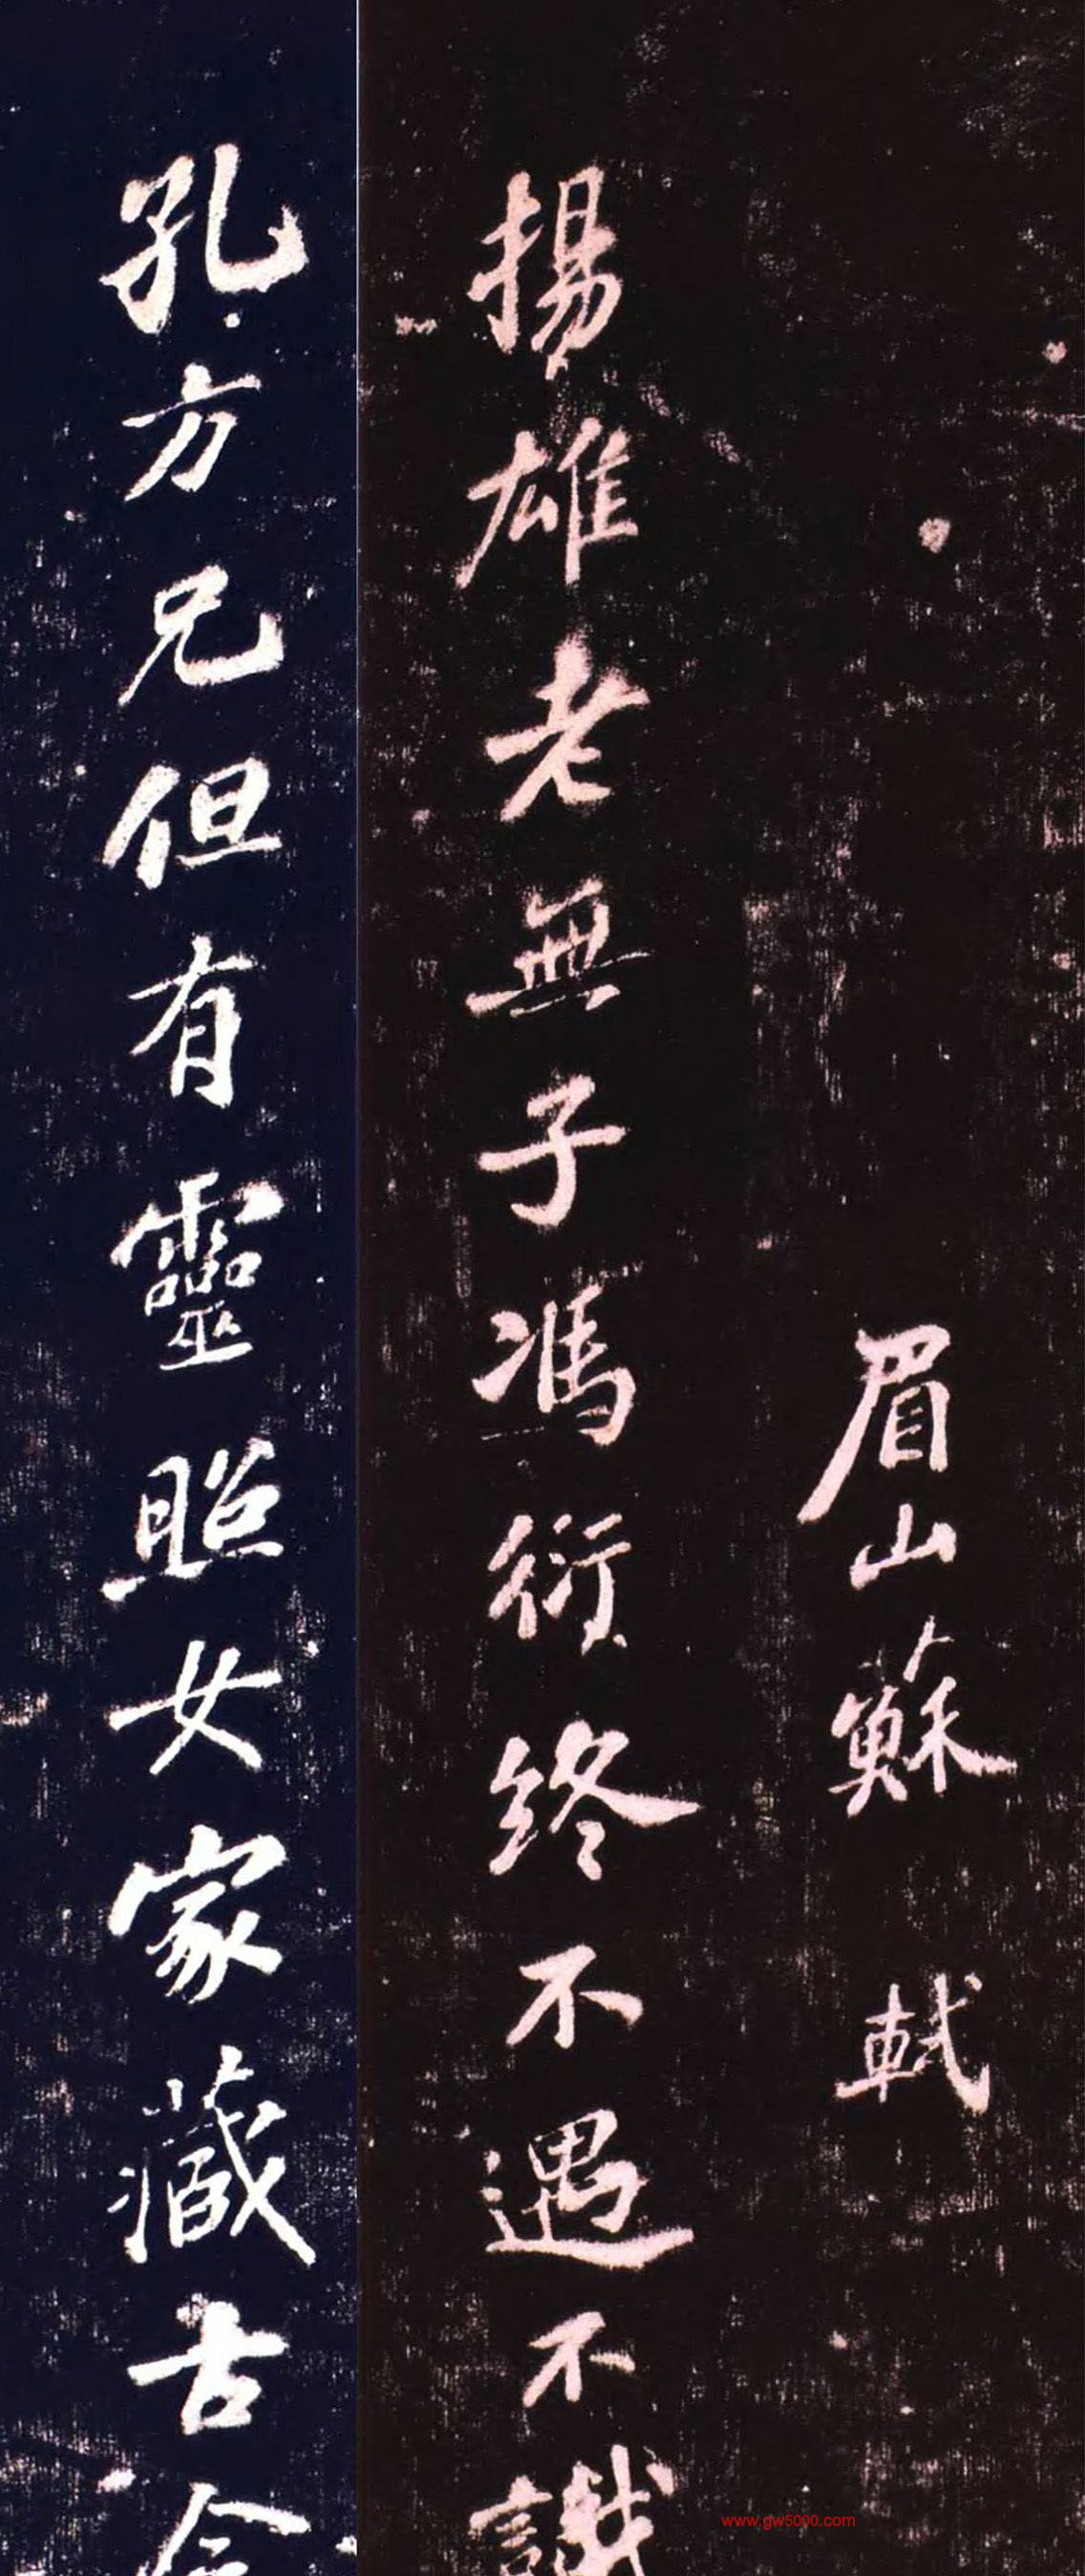 眉山蘇軾
揚雄老無子馮衍終不遇不識
孔方兄但有靈照女家藏古今
www.gw5000.com